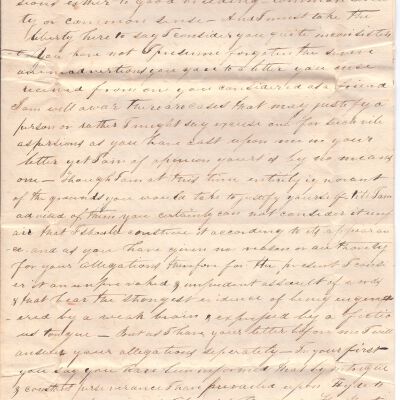 to good breeding common
ty or common sense — And I must take the
liberty here to say I consider you quite inconsistent
you have not I presume forgotten the severe
animadversions you gave to a letter you once
received from one you considered as a friend
I am well aware there are cases that may justify a
person or rather I might say excuse one for such vile
aspersions as you have cast upon me in your
letter yet I am of opinion yours is by no means
one — Though I am at this time entirely ignorant
of the grounds you would take to justify yourself till I am
advised of them you certainly can not consider it unf
air that I should construe it according to its appearan
ce and as you have given no reason or authority
for your allegations therefore for the present I consi
der it an unprovoked & impudent assault of words
& that bear the strongest evidence of being engend
ered by a weak brain & expressed by a
us tongue — But as I have your letter before me I will
answer your allegations seperately — In your first
you say you have been informed that by intrigue
& constant perseverance I have prevailed upon